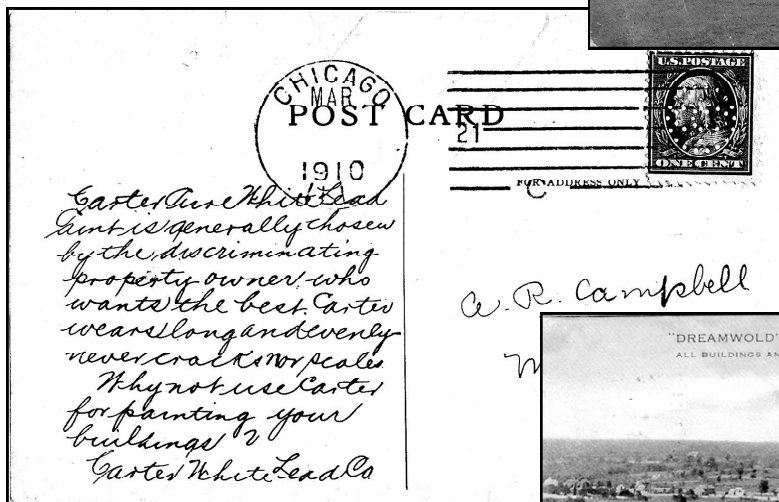 CHICAGO
MAR
21
1910
POST CARD
U.S. POSTAGE
ONE CENT
FOR ADDRESS ONLY
C
Carter Pure White Lead
Paint is generally chosen
by the discriminating
property owner who
wants the best. Carter
wears long and evenly
never cracks nor scales.
Why not use Carter
for painting your
buildings?
Carter White Lead Co
A. R. Campbell
"DREAMWOLD"
ALL BUILDINGS AN